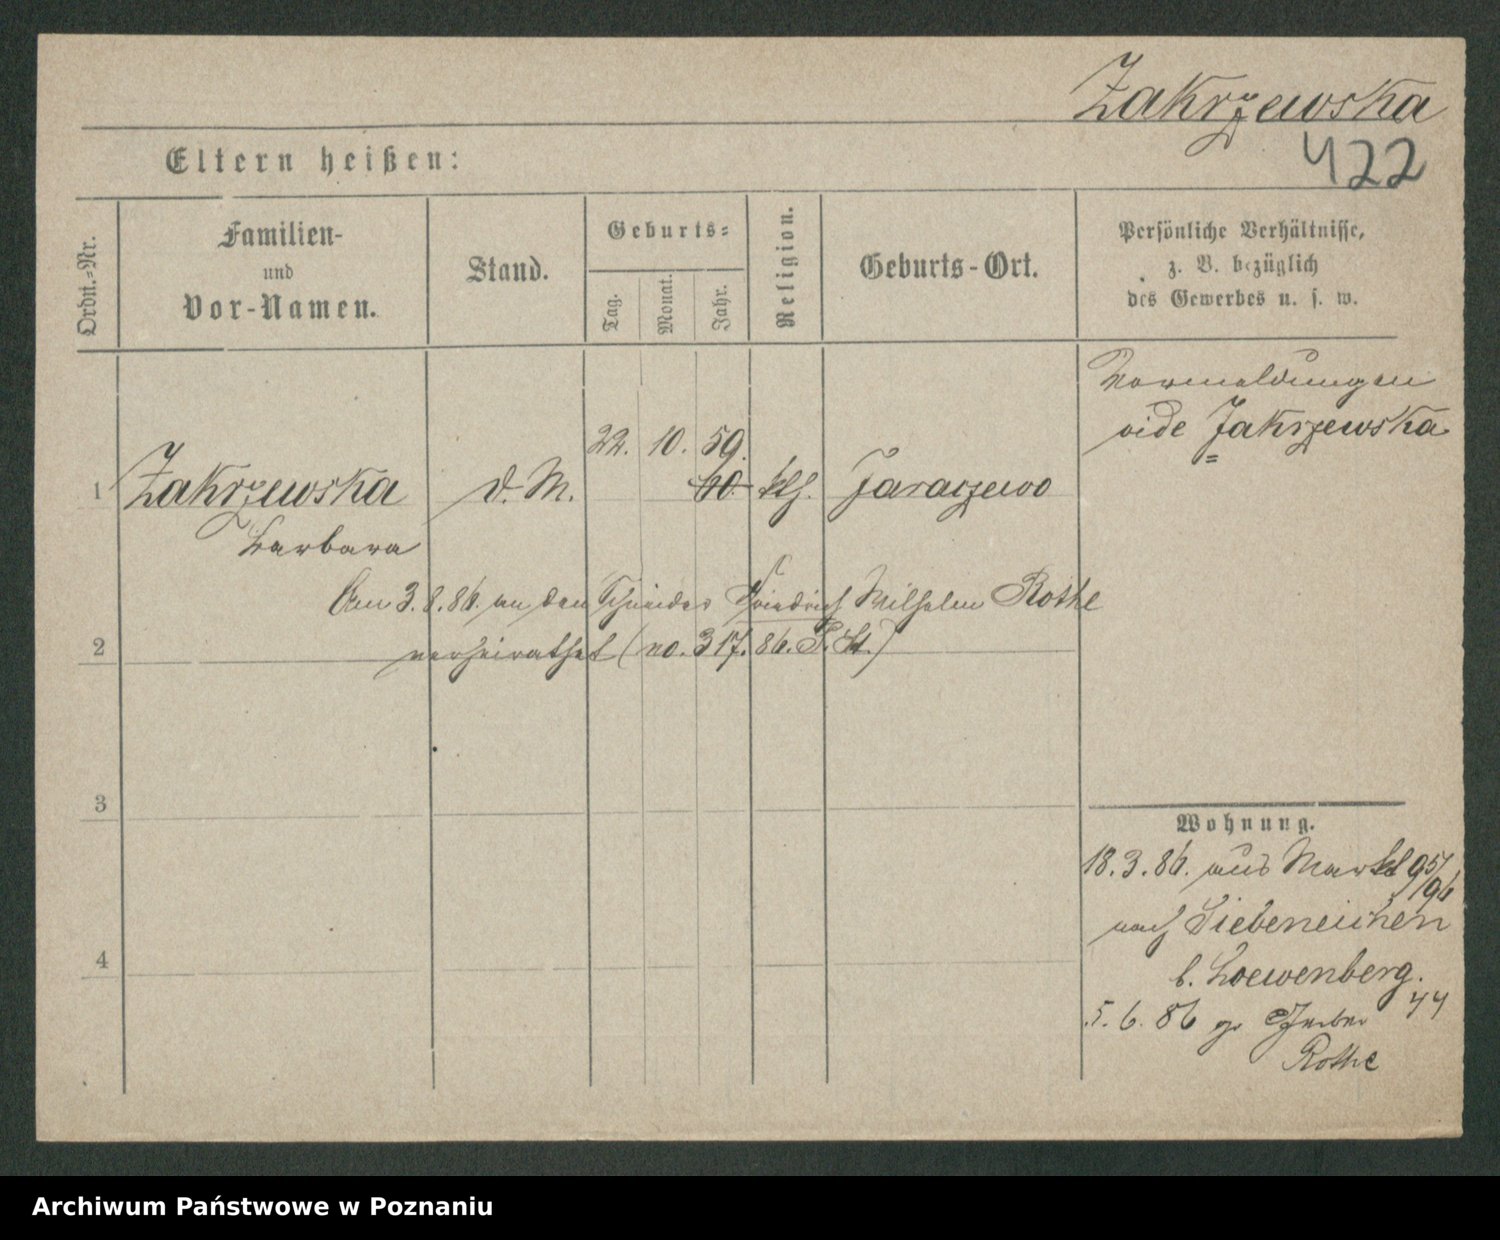 Zakrzewska
422
Eltern heißen:
Ordn.-Nr.
Familien-
und
Vor-Namen.
Stand.
Geburts-
Tag.
Monat.
Jahr.
Religion.
Geburts-Ort.
Persönliche Verhältnisse,
z. B. bezüglich
des Gewerbes u. s. w.
Vormeldungen
vide Jakrzewska
22. 10. 59.
1 Zakrzewska d. M. 60. kth. Jaraczewo
Barbara
Am 3.8.86. an den Schneider Friedrich Wilhelm Rothe
2 verheirathet (no. 317. 86. P. St.)
3
Wohnung.
18.3.86. aus Markt 95/96
nach Siebeneichen
4
b. Loewenberg.
5.6.86 44
Rothe
Archiwum Państwowe w Poznaniu